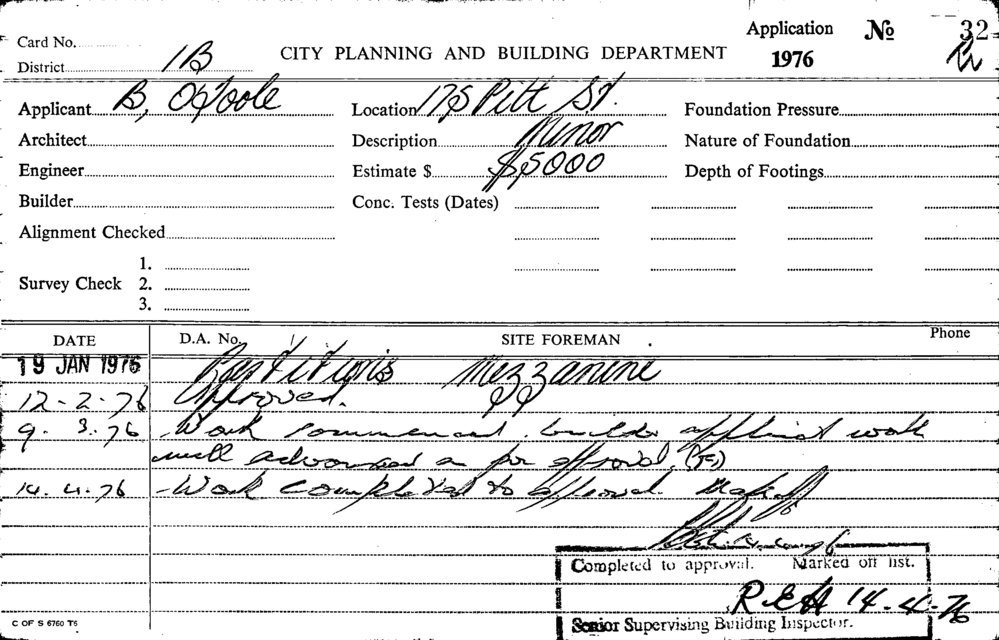 Card No.
District 1B
CITY PLANNING AND BUILDING DEPARTMENT
Application No 32
1976
Applicant B, O'Toole
Location 175 Pitt St.
Foundation Pressure
Architect
Description Minor
Nature of Foundation
Engineer
Estimate $ $5000
Depth of Footings
Builder
Conc. Tests (Dates)
Alignment Checked
Survey Check 1.
2.
3.
DATE D.A. No. SITE FOREMAN Phone
19 JAN 1976 Partitions Mezzanine
12-2-76 Approved.
9. 3. 76 -Work commenced. builder applicant work
well advanced as per approval
14.4.76 -Work completed to approval.
Completed to approval. Marked off list.
R.E.H 14-4-76
Senior Supervising Building Inspector.
C OF S 6760 T6